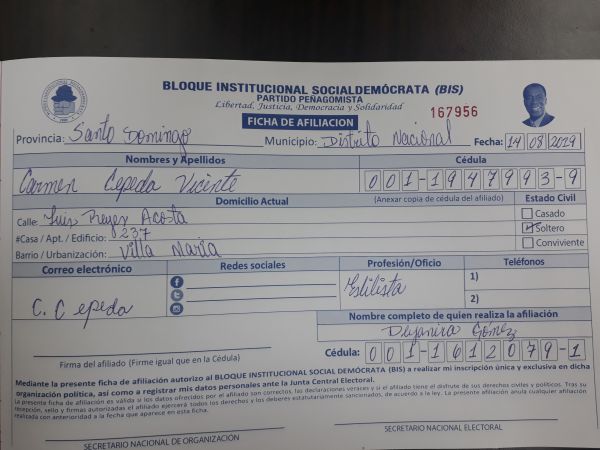 BLOQUE INSTITUCIONAL SOCIALDEMÓCRATA (BIS)
PARTIDO PEÑAGOMISTA
Libertad, Justicia, Democracia y Solidaridad
FICHA DE AFILIACION
167956
Provincia: Santo Domingo Municipio: Distrito Nacional Fecha: 14 08 2019
Nombres y Apellidos Cédula
Carmen Cepeda Vicente 001-1947993-9
Domicilio Actual (Anexar copia de cédula del afiliado) Estado Civil
Calle: Luis Reyes Acosta Casado
#Casa / Apt. / Edificio: 237 Soltero
Barrio / Urbanización: Villa María Conviviente
Correo electrónico Redes sociales Profesión/Oficio Teléfonos
C. Cepeda Estilista 1)
2)
Nombre completo de quien realiza la afiliación
Deyanira Gómez
Firma del afiliado (Firme igual que en la Cédula) Cédula: 001-1612079-1
Mediante la presente ficha de afiliación autorizo al BLOQUE INSTITUCIONAL SOCIAL DEMÓCRATA (BIS) a realizar mi inscripción única y exclusiva en dicha
organización política, así como a registrar mis datos personales ante la Junta Central Electoral.
La presente ficha de afiliación es válida si los datos ofrecidos por el afiliado son correctos, las declaraciones veraces y si el afiliado tiene el disfrute de sus derechos civiles y políticos. Tras su
recepción, sello y firmas autorizadas el afiliado ejercerá todos los derechos y los deberes estatutariamente sancionados, de acuerdo a la ley. La presente afiliación anula cualquier afiliación
realizada con anterioridad a la fecha que aparece en esta ficha.
SECRETARIO NACIONAL DE ORGANIZACIÓN SECRETARIO NACIONAL ELECTORAL